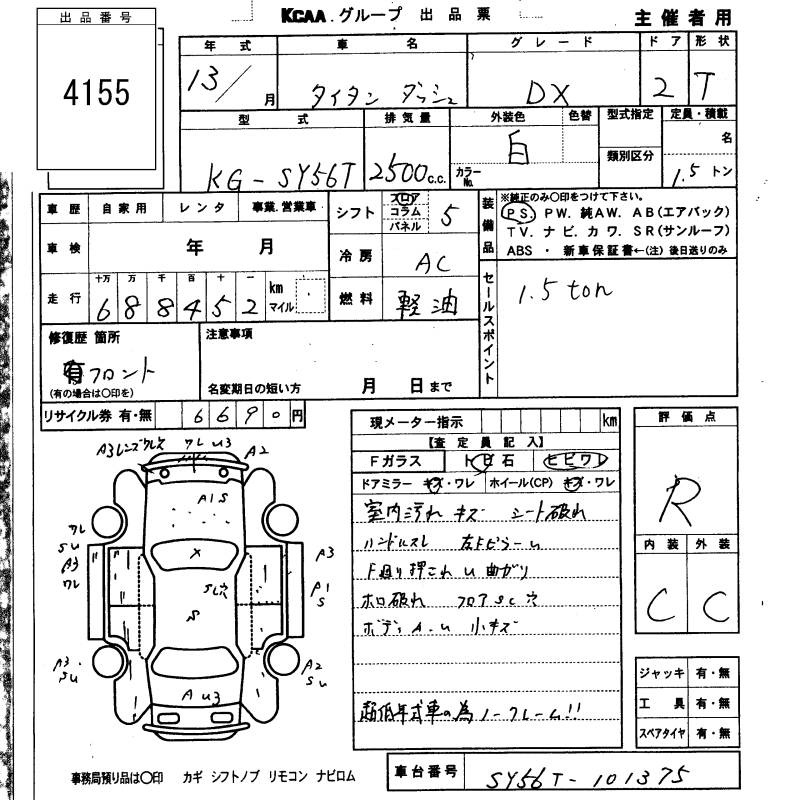 出品番号
4155
KCAA.グループ 出品票
主催者用
年式 車名 グレード ドア 形状
13/ 月 タイタン ダッシュ DX 2 T
型式 排気量 外装色 色替 型式指定 定員・積載
KG-SY56T 2500c.c. 白 カラーNo. 類別区分 名
1.5トン
車歴 自家用 レンタ 事業.営業車
車検 年 月
走行 十万 万 千 百 十 一 km マイル
6 8 8 4 5 2
シフト フロア コラム パネル 5
冷房 AC
燃料 軽油
装備品 ※純正のみ○印をつけて下さい。
PS. PW. 純AW. AB(エアバック)
TV. ナビ. カワ. SR(サンルーフ)
ABS ・ 新車保証書←(注)後日送りのみ
セールスポイント
1.5ton
修復歴 箇所
有 フロント
(有の場合は○印を)
注意事項
名変期日の短い方 月 日まで
リサイクル券 有・無 6690円
現メーター指示 km
【査定員記入】
Fガラス トビ石 ヒビワレ
ドアミラー キズ・ワレ ホイール(CP) キズ・ワレ
室内汚れ キズ シート破れ
ハンドルスレ 左Fピラーu
F廻り押され u 曲がり
ホロ破れ フロアSC穴
ボディA.u 小キズ
超低年式車の為ノークレーム!!
評価点
R
内装 外装
C C
ジャッキ 有・無
工具 有・無
スペアタイヤ 有・無
A3レンズワレ ワレ u3 A2
A1S
ワレ
Su
A3
ワレ
A3
A1
S
X
SC穴
S
A3
Su
A2
Su
A u3
事務局預り品は○印 カギ シフトノブ リモコン ナビロム
車台番号 SY56T-101375